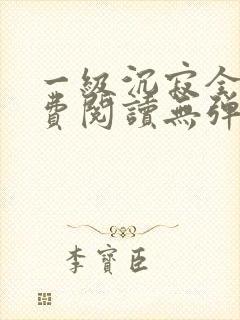 一級沉寂全
費閱讀無彈
李寶臣